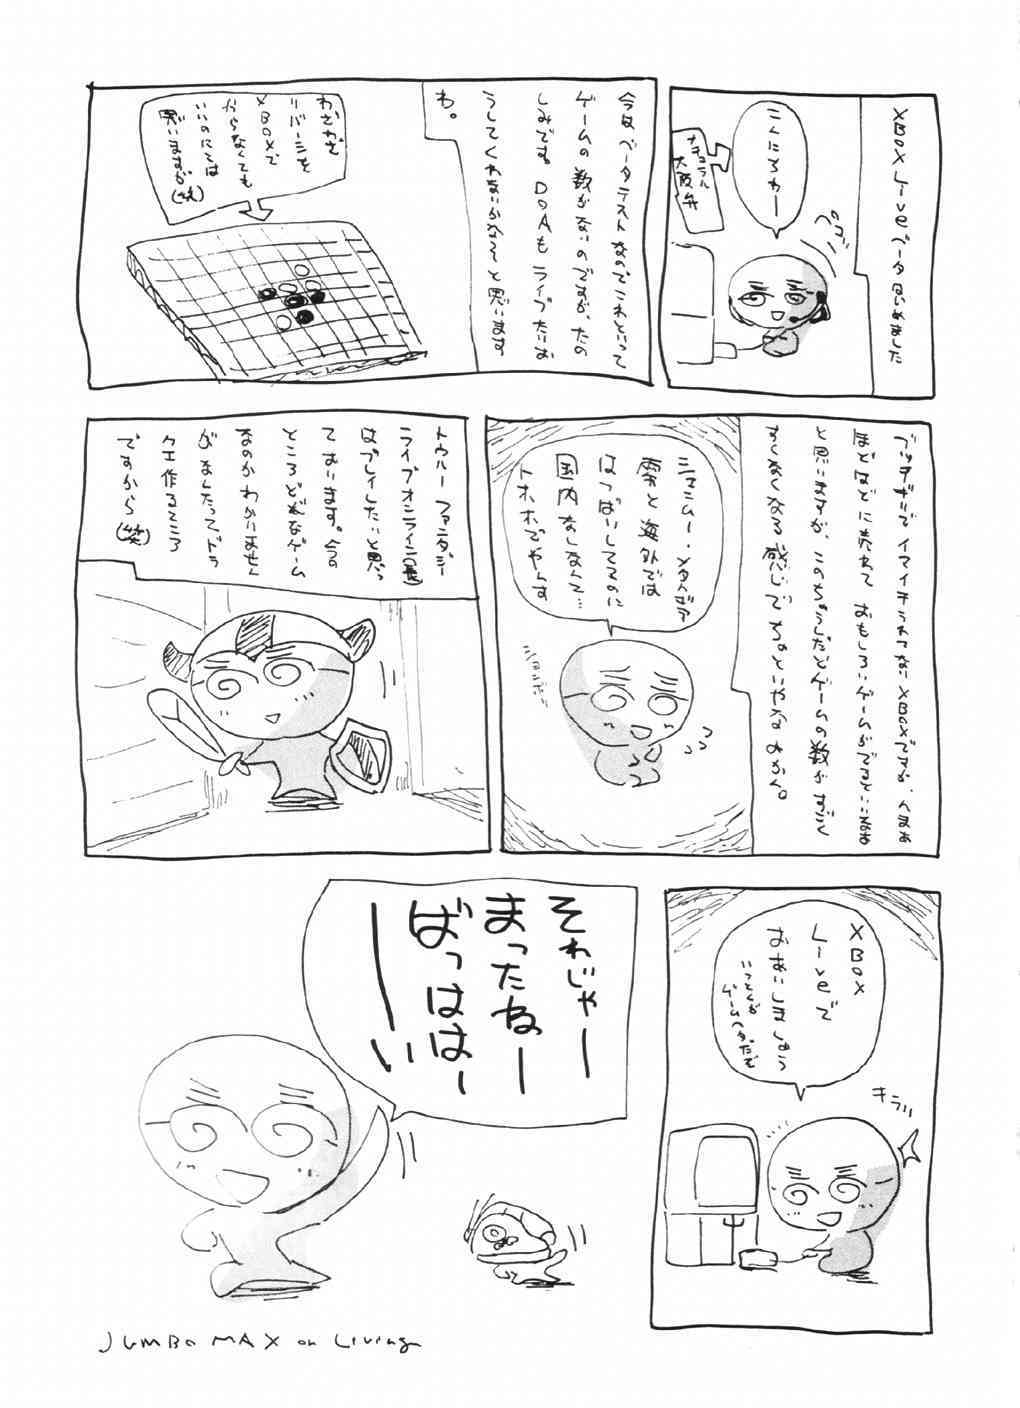 XBOX Liveベータはじめました
こんにちわー
ナチュラル
大阪弁
ペコ
今はベータテストなのでこれといって
ゲームの数がないのですが、たの
しみです。DOAもライブたいお
うしてくれないかなぁと思います
わ。
わざわざ
リバーシを
XBOXで
やらなくても
いいのにとは
思いますが
(笑)
ブッチギリでイマイチうれてないXBOXですが、
ほどほどに売れて おもしろいゲームがでるといいなぁ
と思いますが、このちょうしだとゲームの数がすごく
すくなくなる感じでちょといやなよかん。
シェンムー・メタルギア
零と海外では
はつばいしてるのに
国内なしなんて…
トホホでやんす
トゥルーファンタジー
ライブオンライン(長)
はプレイしたいと思っ
ております。今の
ところどんなゲーム
なのかわかりません
がまぁなんたってドラ
クエ作るところ
ですから(笑)
XBOX
Liveで
おあいしましょう
いっとくが
ゲームヘタだぞ
キラッ
それじゃー
まったねー
ばっははー
ーい
JUMBO MAX on Living